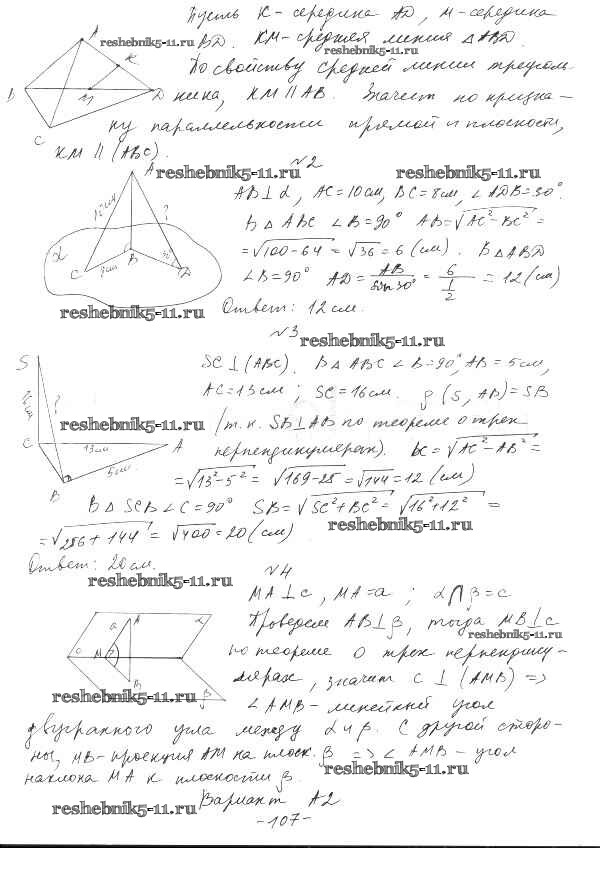 Пусть K - середина AD, M - середина
BD. KM - средняя линия △ABD.
По свойству средней линии треуголь-
ника, KM || AB. Значит по призна-
ку параллельности прямой и плоскости,
KM || (ABC).
A
K
B
M
D
C
reshebnik5-11.ru
reshebnik5-11.ru
№2
reshebnik5-11.ru
reshebnik5-11.ru
AB ⊥ α, AC = 10 см, BC = 8 см, ∠ADB = 30°.
В △ABC ∠B = 90° AB = √AC² - BC² =
= √100 - 64 = √36 = 6 (см). В △ABD
∠B = 90° AD = AB / sin 30° = 6 / 1/2 = 12 (см)
Ответ: 12 см.
A
?
α
C
8 см
B
30°
D
reshebnik5-11.ru
№3
reshebnik5-11.ru
SC ⊥ (ABC). В △ABC ∠B = 90°, AB = 5 см,
AC = 13 см; SC = 16 см. ρ (S, AB) = SB
/т. к. SB ⊥ AB по теореме о трех
перпендикулярах). BC = √AC² - AB² =
= √13² - 5² = √169 - 25 = √144 = 12 (см)
В △SCB ∠C = 90° SB = √SC² + BC² = √16² + 12² =
= √256 + 144 = √400 = 20 (см)
Ответ: 20 см.
S
?
C
13 см
A
5 см
B
reshebnik5-11.ru
reshebnik5-11.ru
reshebnik5-11.ru
№4
MA ⊥ c, MA = a; α ∩ β = c
Проведем AB ⊥ β, тогда MB ⊥ c
по теореме о трех перпендику-
лярах, значит c ⊥ (AMB) =>
∠AMB - линейный угол
двугранного угла между α и β. С другой сторо-
ны, MB - проекция AM на плоск. β => ∠AMB - угол
наклона MA к плоскости β.
a
A
α
c
M
B
β
reshebnik5-11.ru
reshebnik5-11.ru
reshebnik5-11.ru
reshebnik5-11.ru
Вариант А2
-107-